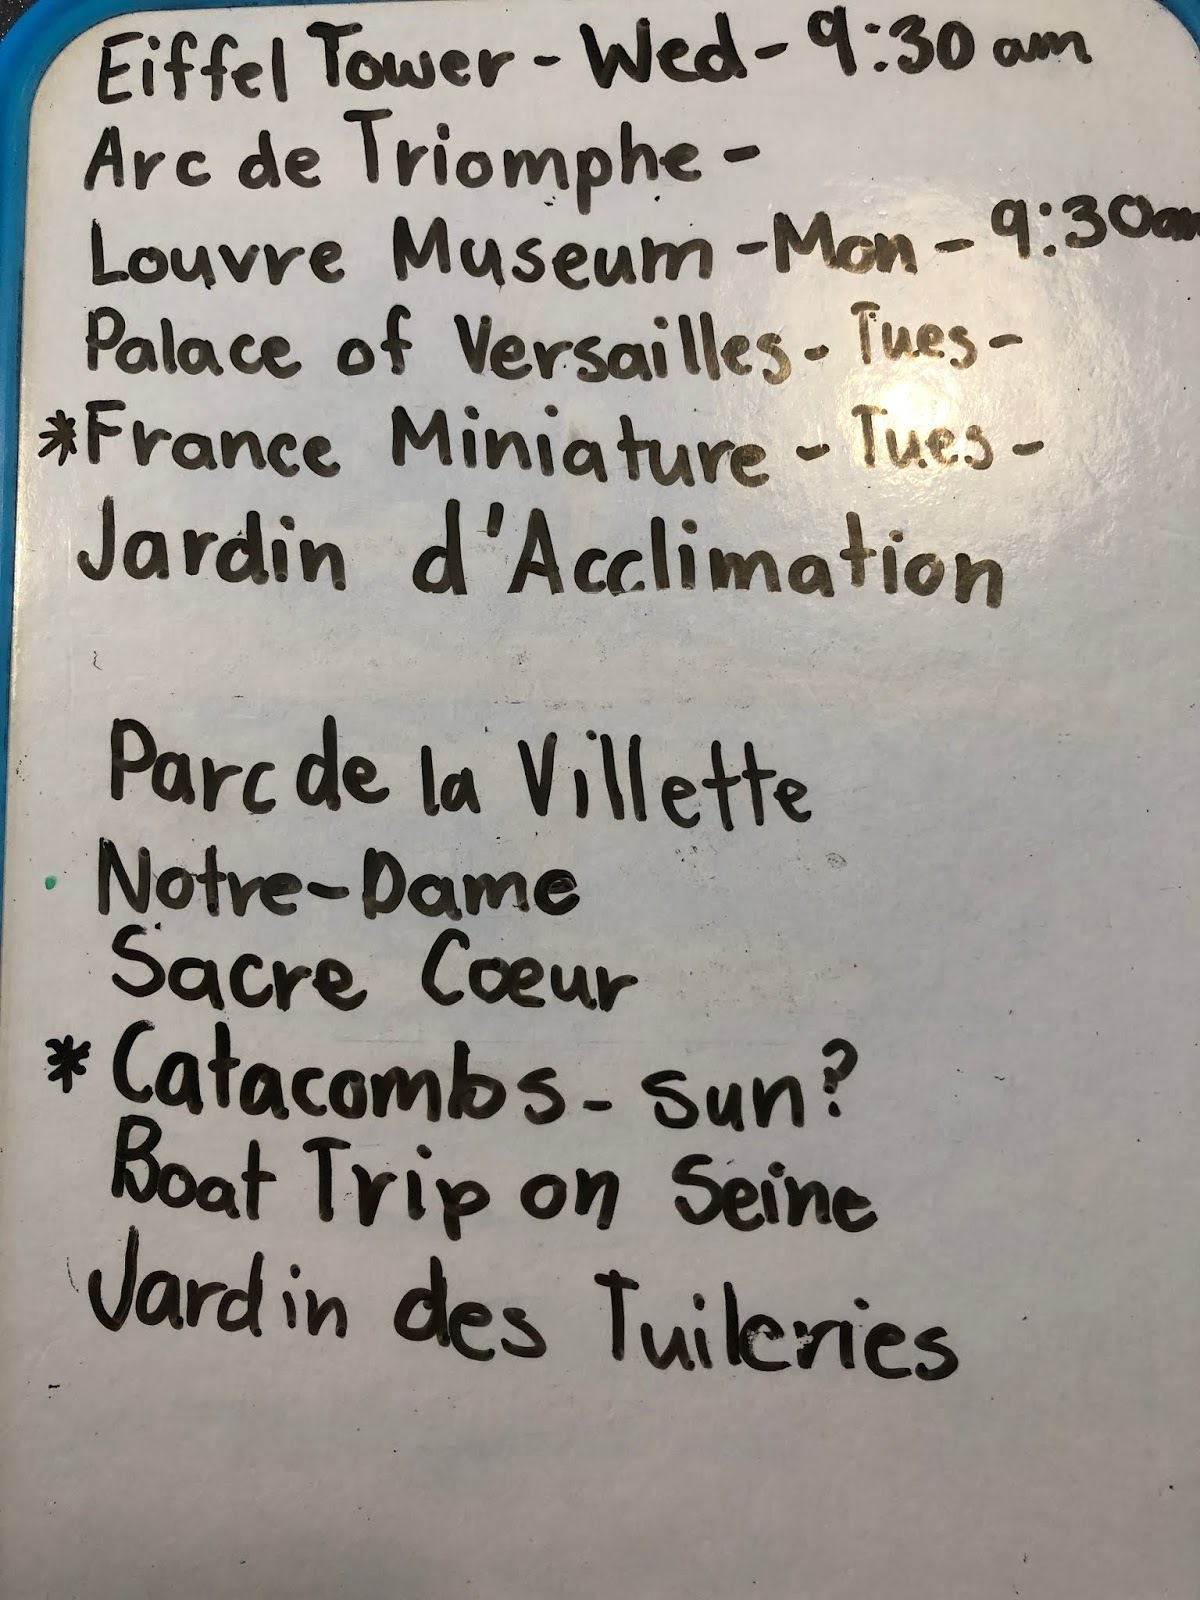 Eiffel Tower - Wed - 9:30 am
Arc de Triomphe -
Louvre Museum - Mon - 9:30am
Palace of Versailles - Tues -
*France Miniature - Tues -
Jardin d'Acclimation
Parc de la Villette
Notre-Dame
Sacre Cœur
* Catacombs - sun?
Boat Trip on Seine
Jardin des Tuileries